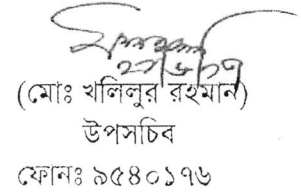 ২৭/৬/১৭
(মোঃ খলিলুর রহমান)
উপসচিব
ফোনঃ ৯৫৪০১৭৬